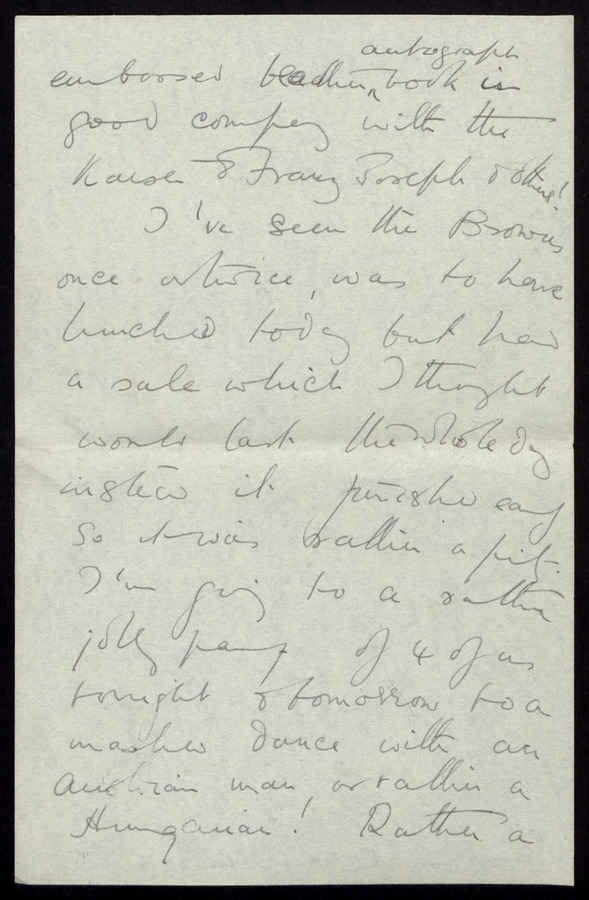 autograph
embossed leather book is
good company with the
Kaiser & Franz Joseph & others!
I've seen the Browns
once or twice, was to have
lunched today but had
a sale which I thought
would last the whole day
instead it finished early
so it was rather a pity.
I'm going to a rather
jolly party of 4 of us
tonight & tomorrow to a
masked dance with an
Austrian man, or rather a
Hungarian! Rather a